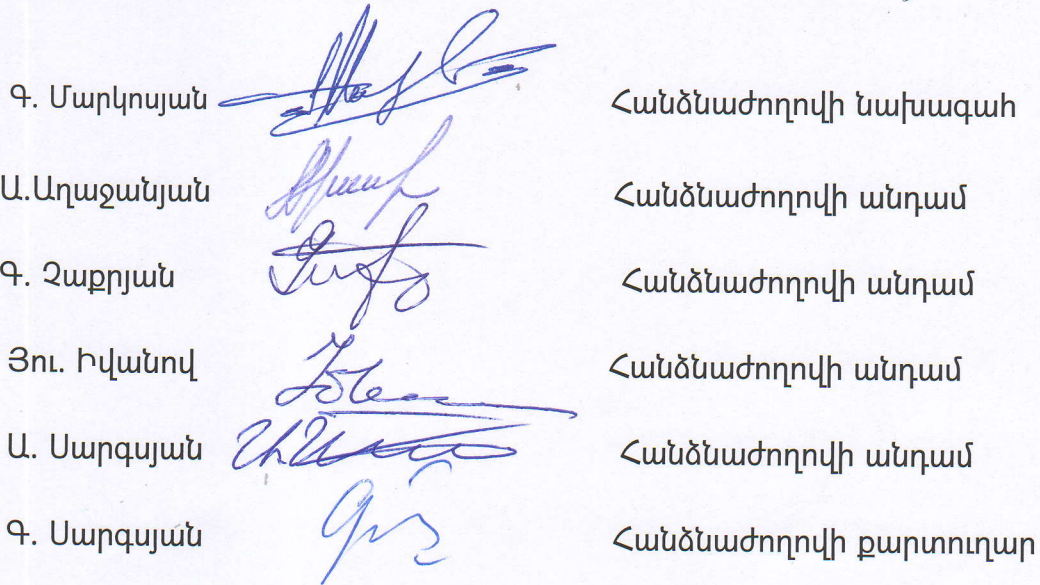 Գ. Մարկոսյան Հանձնաժողովի նախագահ
Ա.Աղաջանյան Հանձնաժողովի անդամ
Գ. Չաքրյան Հանձնաժողովի անդամ
Յու. Իվանով Հանձնաժողովի անդամ
Ա. Սարգսյան Հանձնաժողովի անդամ
Գ. Սարգսյան Հանձնաժողովի քարտուղար